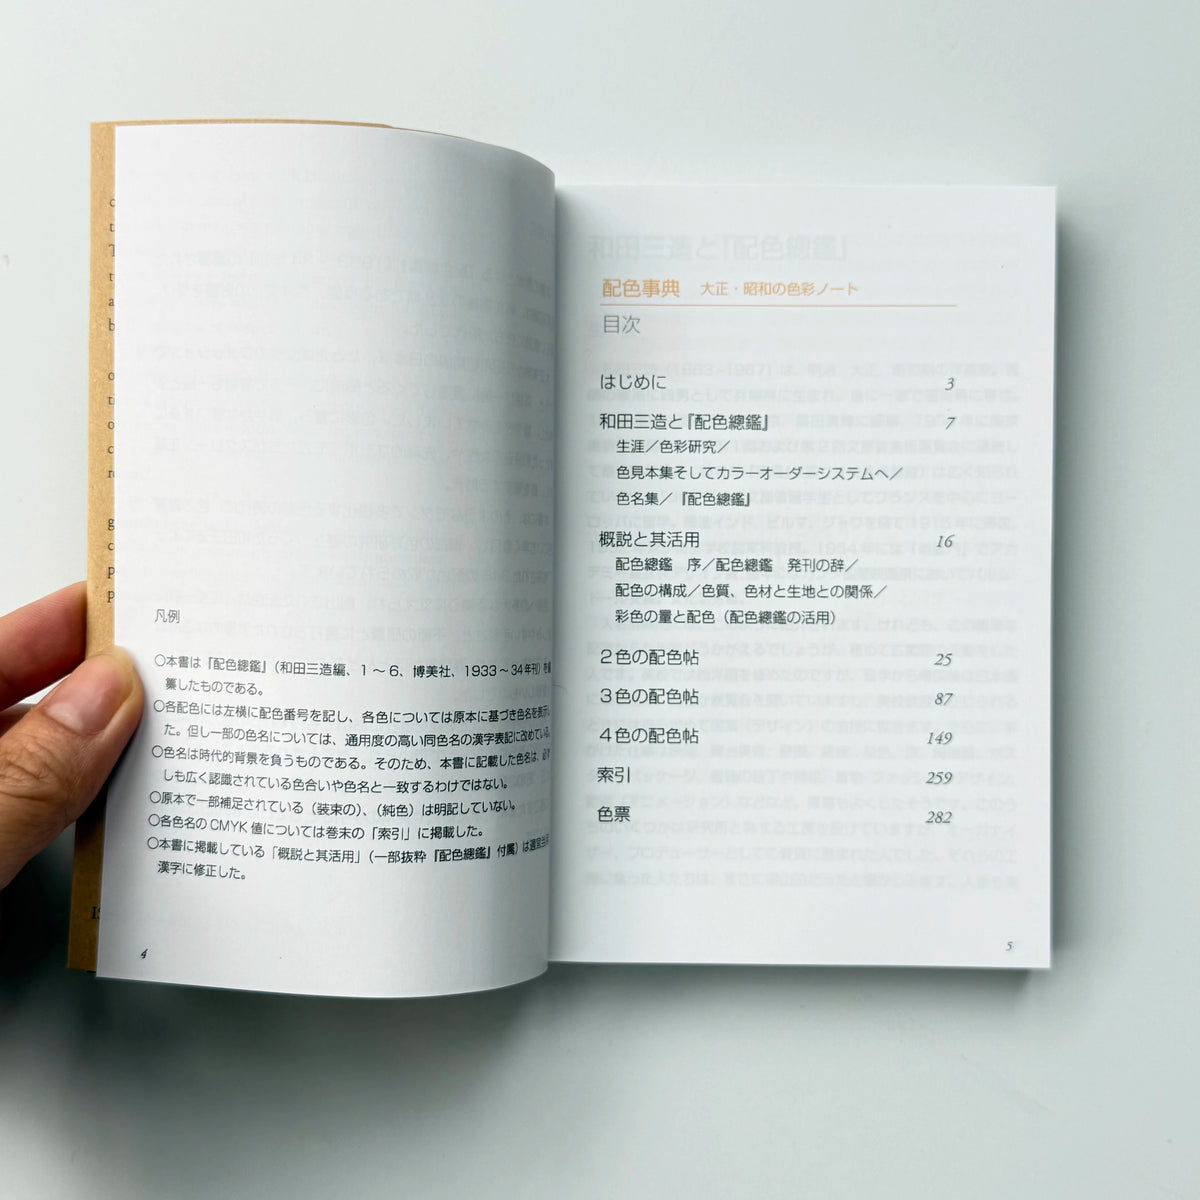 凡例
○本書は『配色總鑑』(和田三造編、1〜6、博美社、1933〜34年刊)を編
纂したものである。
○各配色には左横に配色番号を記し、各色については原本に基づき色名を表示し
た。但し一部の色名については、通用度の高い同色名の漢字表記に改めている。
○色名は時代的背景を負うものである。そのため、本書に記載した色名は、必ず
しも広く認識されている色合いや色名と一致するわけではない。
○原本で一部補足されている(装束の)、(純色)は明記していない。
○各色名のCMYK値については巻末の「索引」に掲載した。
○本書に掲載している「概説と其活用」(一部抜粋『配色總鑑』付属)は適宜当用
漢字に修正した。
4
配色事典 大正・昭和の色彩ノート
目次
はじめに 3
和田三造と『配色總鑑』 7
生涯/色彩研究/
色見本集そしてカラーオーダーシステムへ/
色名集/『配色總鑑』
概説と其活用 16
配色總鑑 序/配色總鑑 発刊の辞/
配色の構成/色質、色材と生地との関係/
彩色の量と配色(配色總鑑の活用)
2色の配色帖 25
3色の配色帖 87
4色の配色帖 149
索引 259
色票 282
5